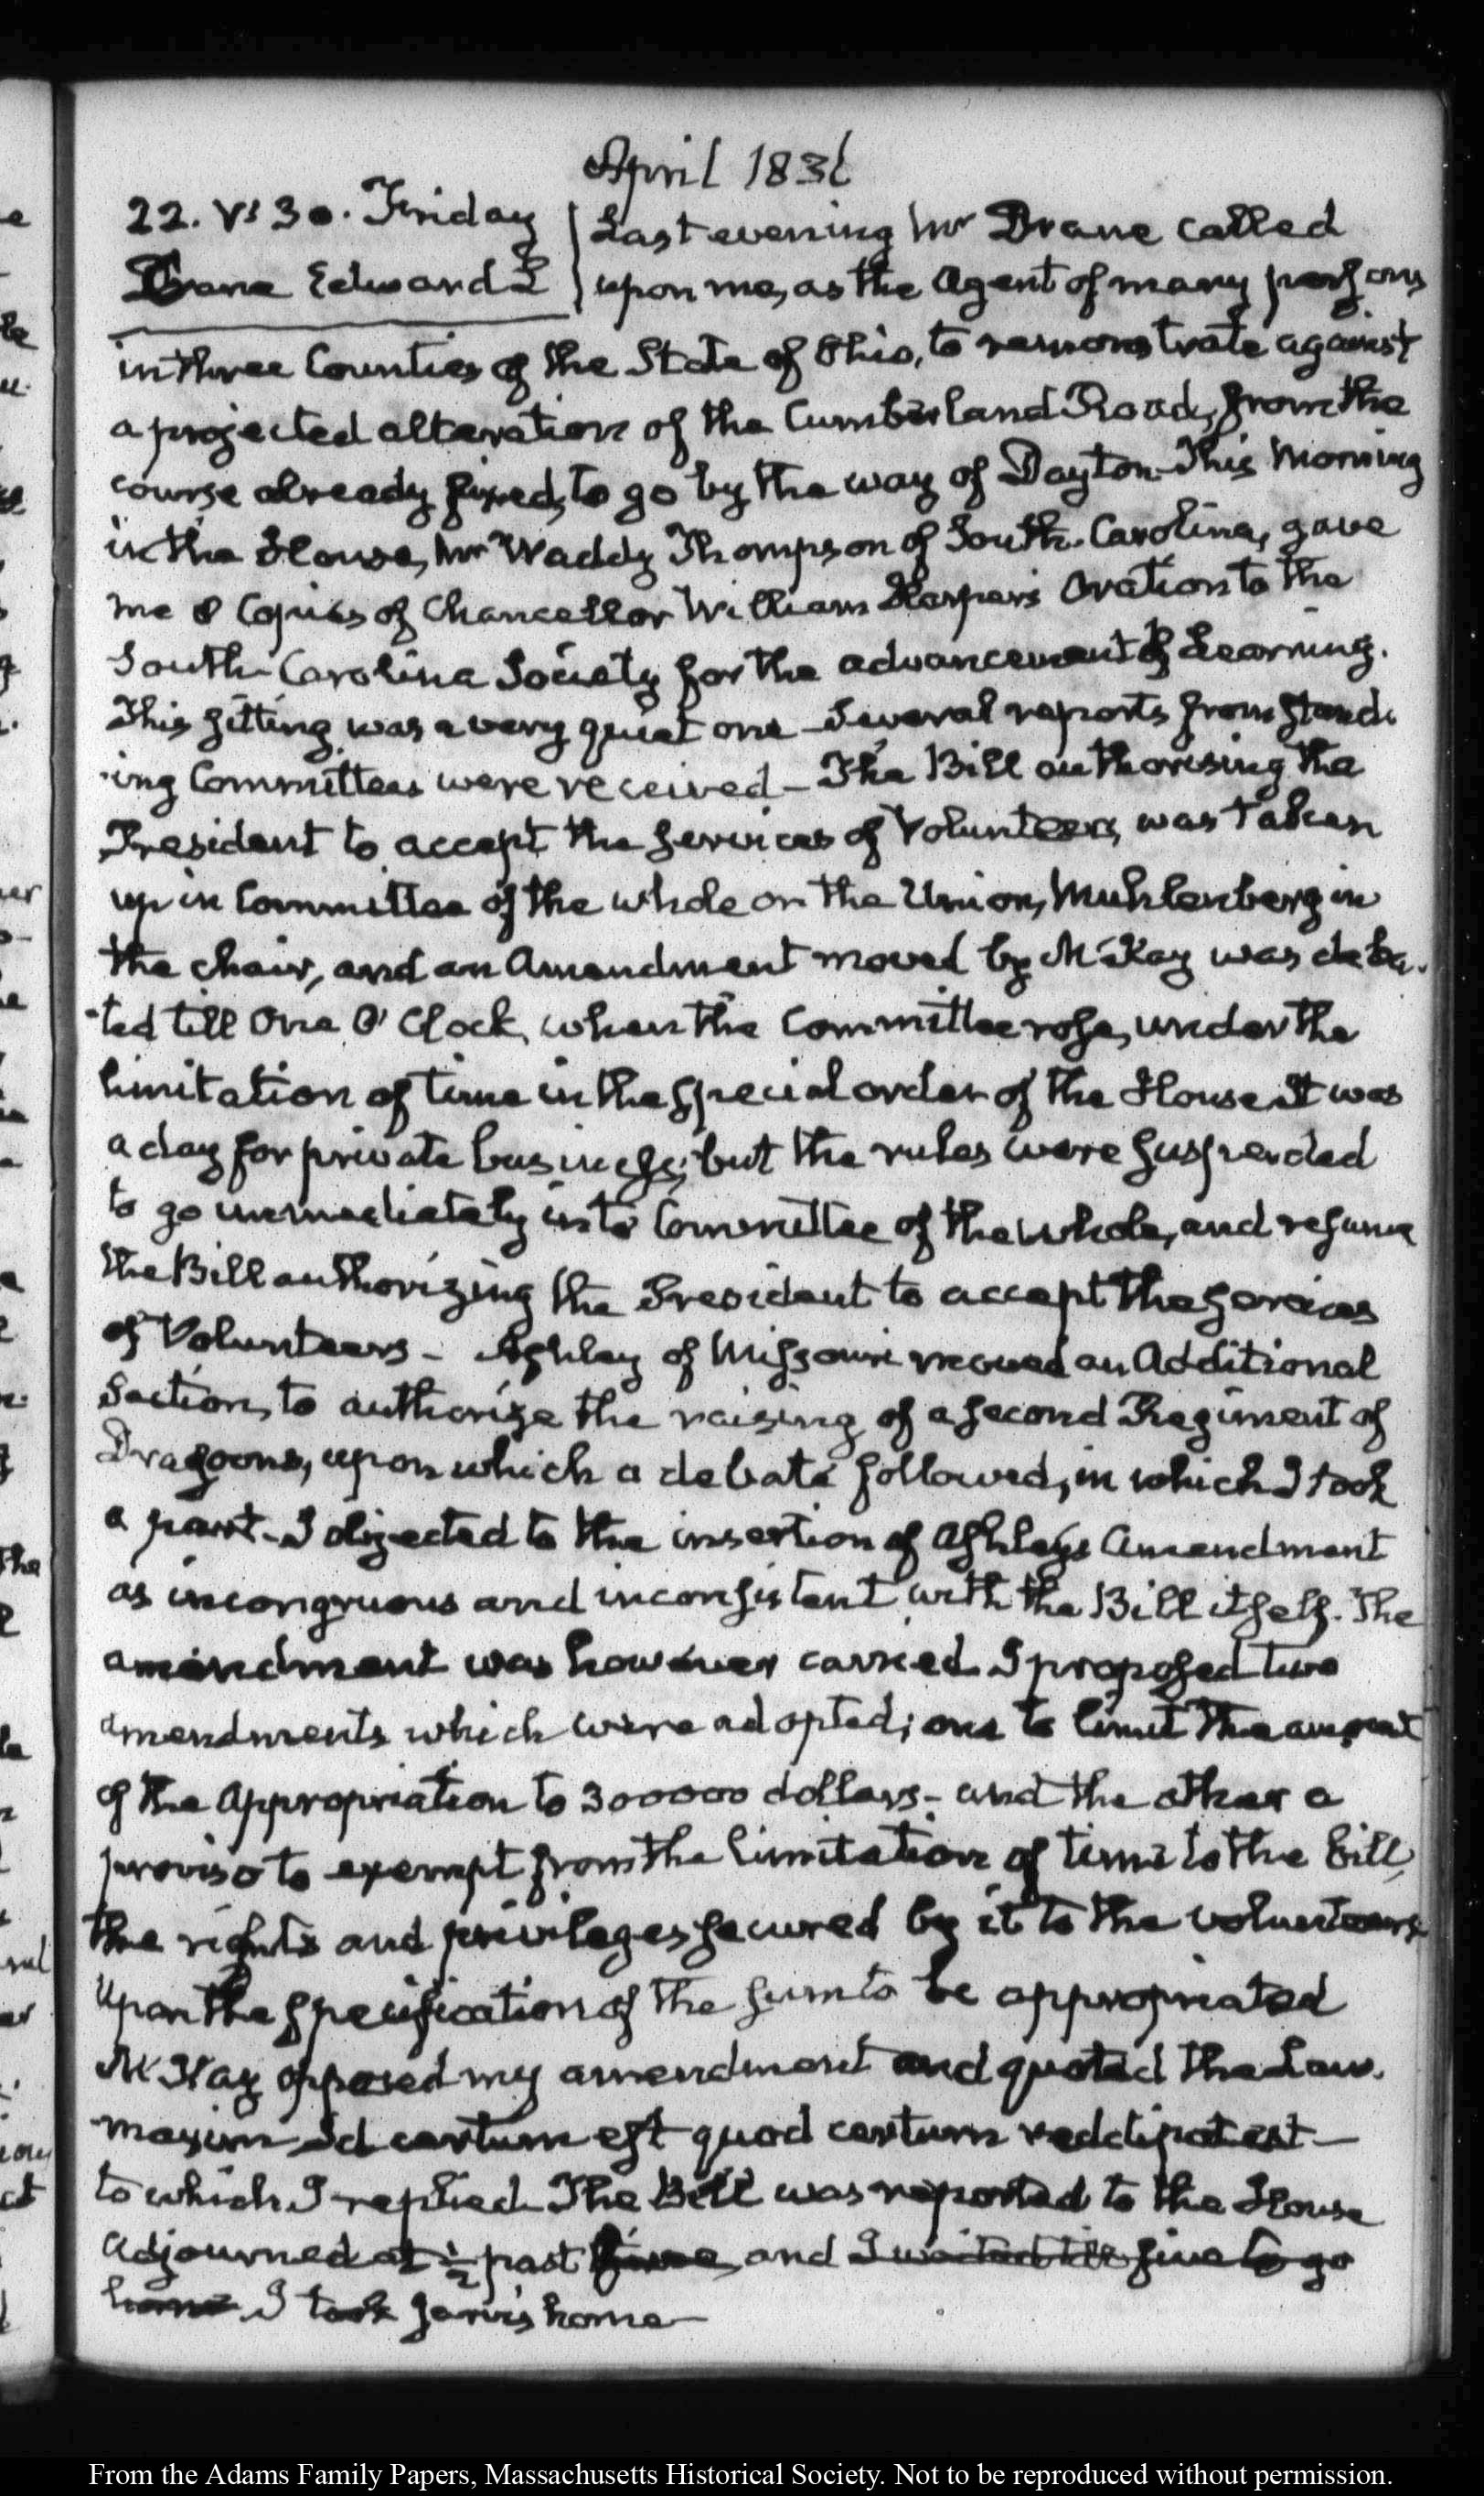 April 1836
22. VI 30. Friday
Drane Edward S
Last evening Mr Drane called
upon me, as the Agent of many persons
in three Counties of the State of Ohio, to remonstrate against
a projected alteration of the Cumberland Road, from the
course already fixed, to go by the way of Dayton- This Morning
in the House, Mr Waddy Thompson of South-Carolina, gave
me 8 Copies of Chancellor William Harper's Oration to the
South-Carolina Society for the advancement of Learning.
This sitting was a very quiet one- Several reports from stand-
-ing Committees were received- The Bill authorising the
President to accept the services of Volunteers, was taken
up in Committee of the whole on the Union, Muhlenberg in
the chair, and an Amendment moved by McKay was deba-
-ted till One O'Clock, when the Committee rose, under the
limitation of time in the special order of the House It was
a day for private business; but the rules were suspended
to go immediately into Committee of the whole, and resume
the Bill authorizing the President to accept the services
of Volunteers- Ashley of Missouri moved an Additional
Section, to authorize the raising of a second Regiment of
Dragoons, upon which a debate followed, in which I took
a part- I objected to the insertion of Ashley's Amendment
as incongruous and inconsistent with the Bill itself. The
amendment was however carried. I proposed two
amendments which were adopted; one to limit the amount
of the Appropriation to 300000 dollars- and the other a
proviso to exempt from the limitation of time to the Bill,
the rights and privileges secured by it to the volunteers
Upon the specification of the sum to be appropriated
McKay opposed my amendment and quoted the Law.
maxim, Id certum est quod certum reddi potest-
to which I replied- The Bill was reported to the House
adjourned at ½ past five, and I waited till five to go
home I took Jarvis home-
From the Adams Family Papers, Massachusetts Historical Society. Not to be reproduced without permission.